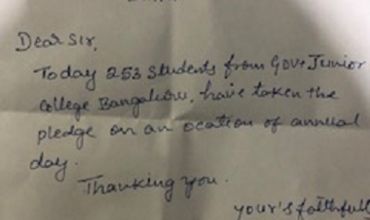 Dear Sir,
Today 253 Students from Govt Junior
College Bangaluru, have taken the
pledge on an ocation of annual
day.
Thanking you.
your's faithfull